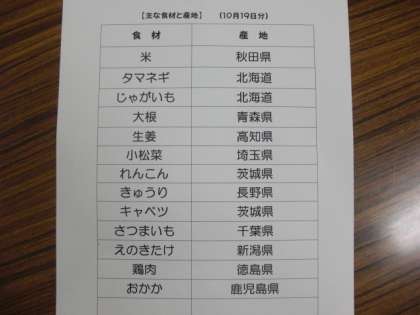 【主な食材と産地】 (10月19日分)
食材 産地
米 秋田県
タマネギ 北海道
じゃがいも 北海道
大根 青森県
生姜 高知県
小松菜 埼玉県
れんこん 茨城県
きゅうり 長野県
キャベツ 茨城県
さつまいも 千葉県
えのきたけ 新潟県
鶏肉 徳島県
おかか 鹿児島県